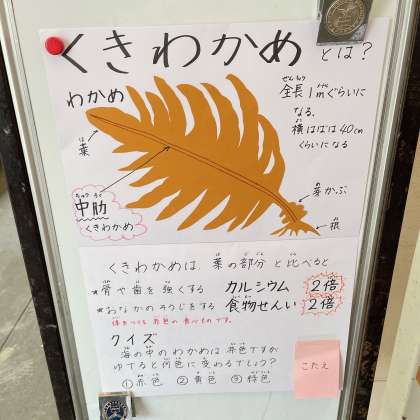 くきわかめとは?
わかめ
全長1mぐらいに
なる。
横はばは40cm
くらいになる
葉
中肋
くきわかめ
芽かぶ
根
くきわかめは、葉の部分と比べると
★骨や歯を強くする カルシウム 2倍
★おなかのそうじをする 食物せんい 2倍
クイズ
海の中のわかめは茶色ですが
ゆでると何色に変わるでしょう?
①赤色 ②黄色 ③緑色
こたえ